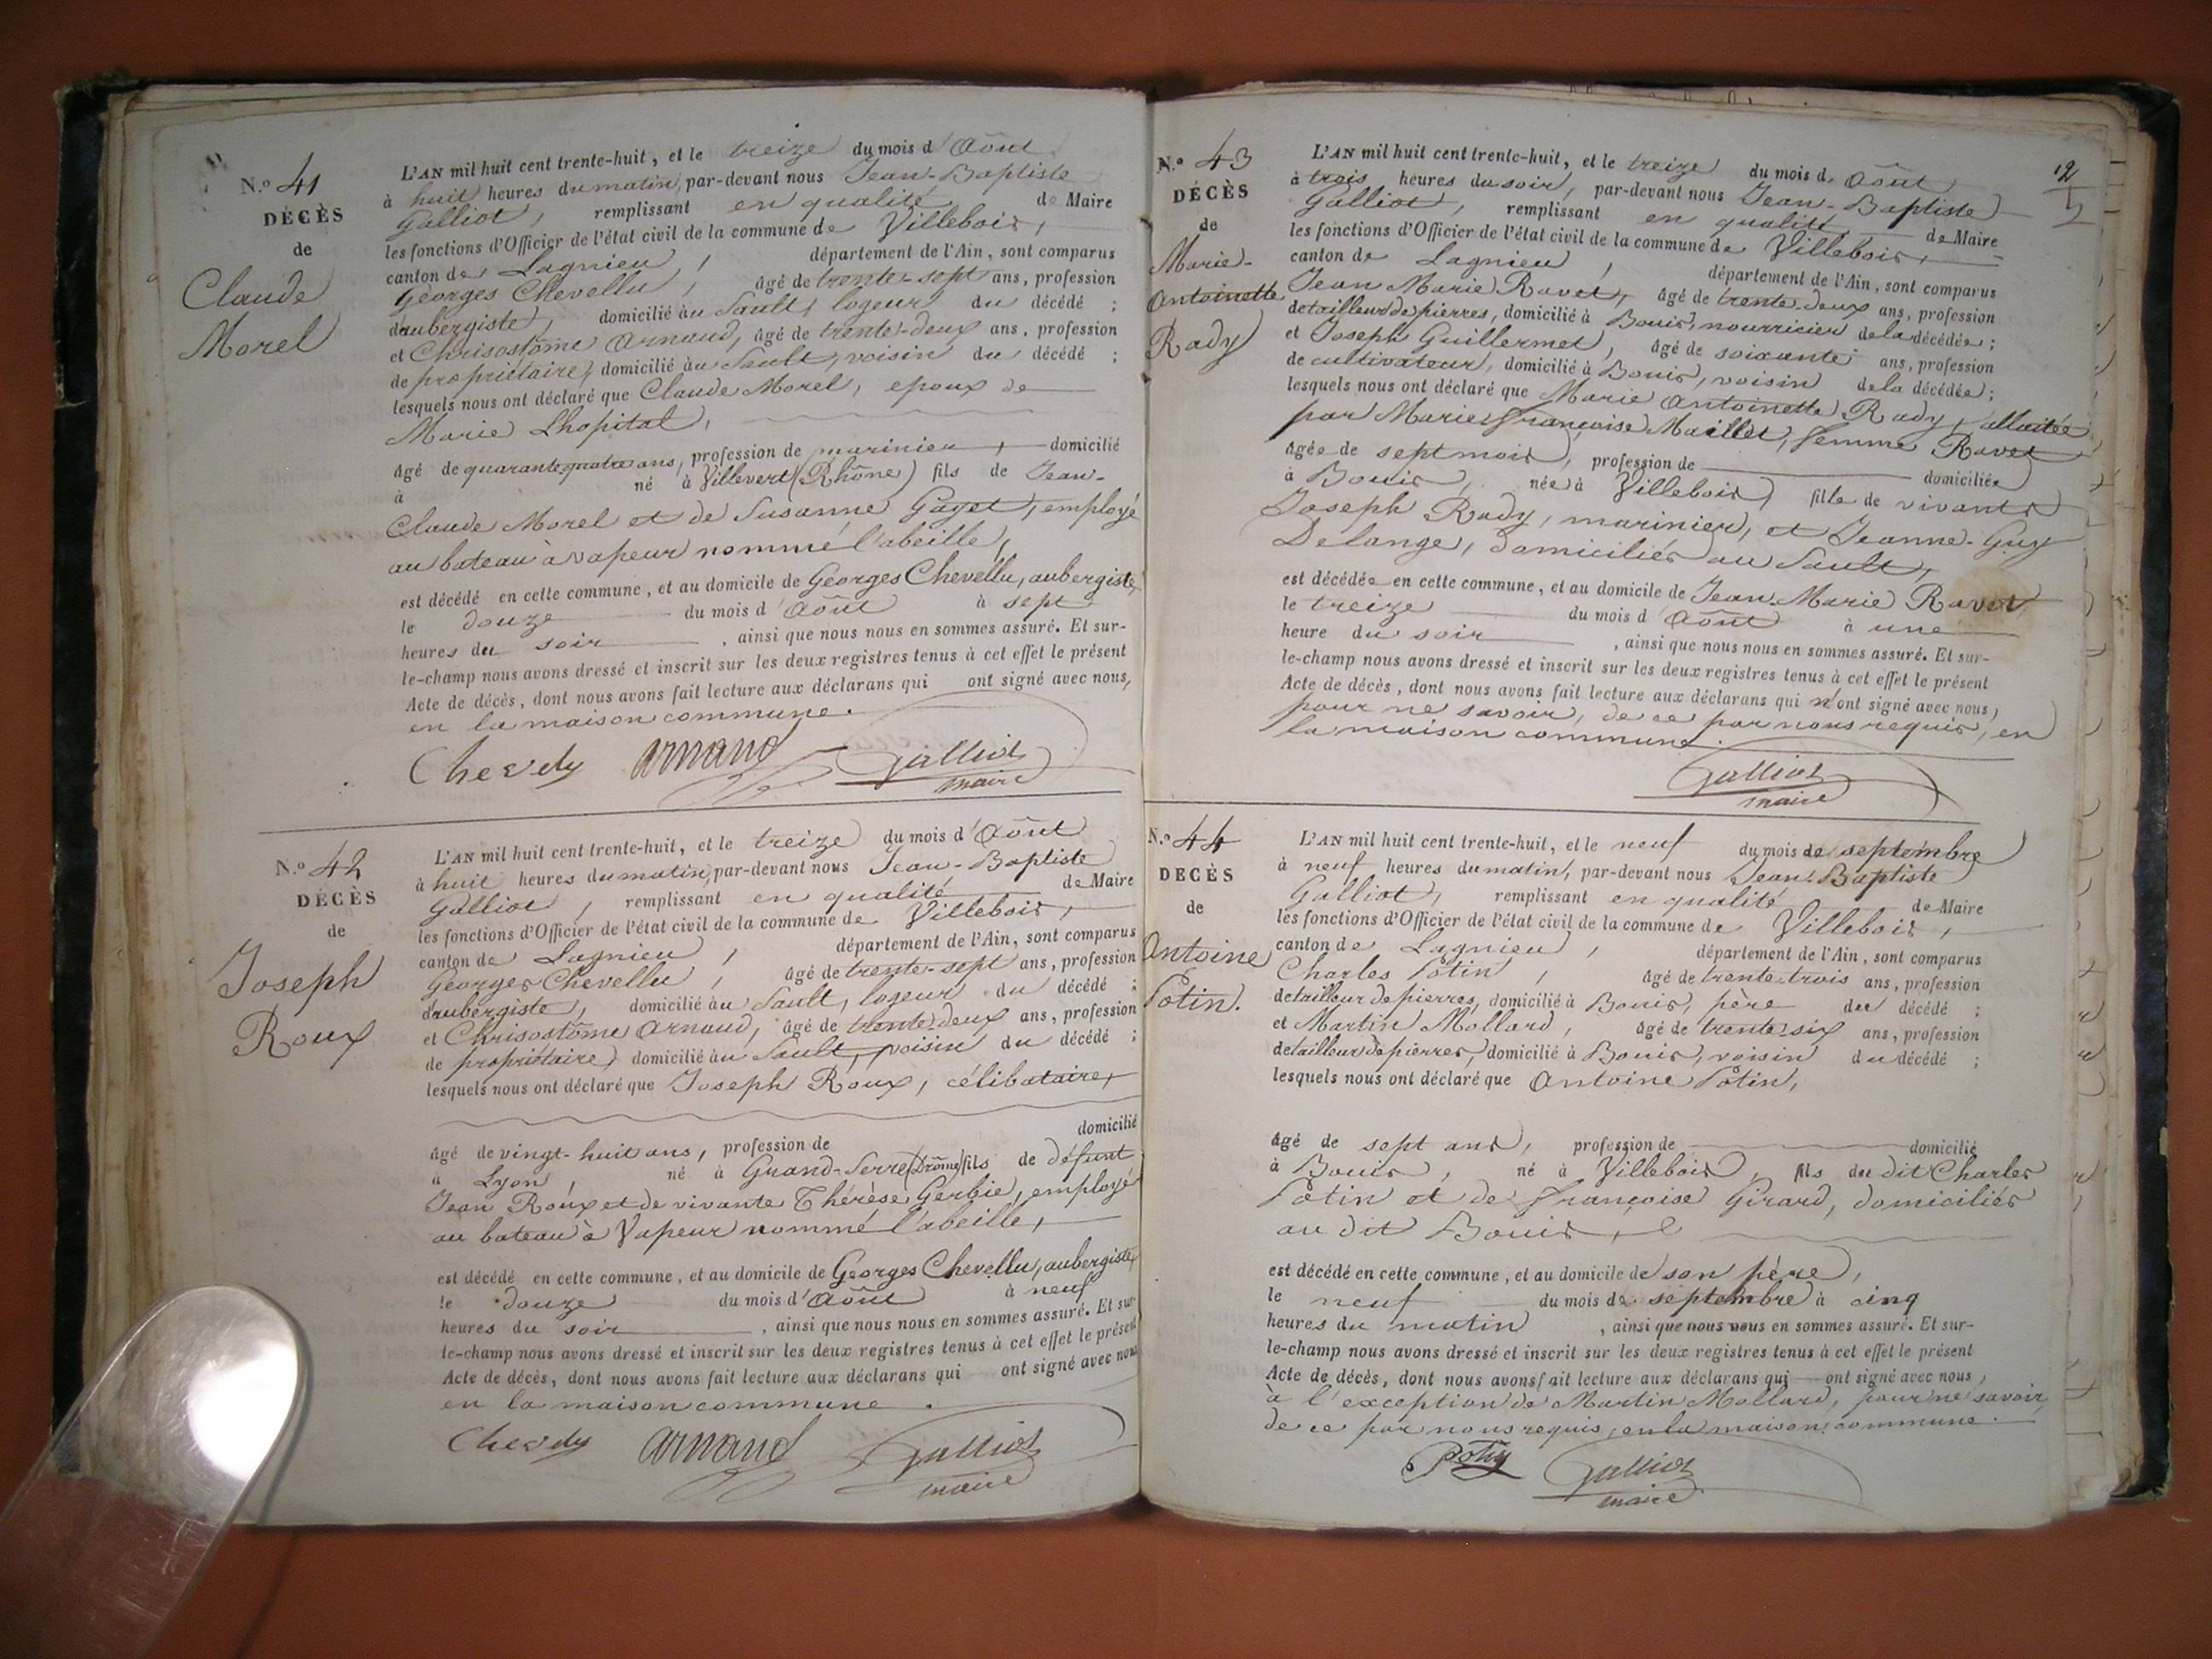 N.o 41
DÉCÈS
de
Claude
Morel
L'AN mil huit cent trente-huit, et le treize du mois d'Août
à huit heures du matin, par-devant nous Jean-Baptiste
Galliot, remplissant en qualité de Maire
les fonctions d'Officier de l'état civil de la commune de Villebois,
canton de Lagnieu, département de l'Ain, sont comparus
Georges Chevellu, âgé de trente-sept ans, profession
d'aubergiste, domicilié au Sault, logeur du décédé ;
et Chrisostôme Arnaud, âgé de trente-deux ans, profession
de propriétaire, domicilié au Sault, voisin du décédé ;
lesquels nous ont déclaré que Claude Morel, epoux de
Marie Lhopital,
âgé de quarante quatre ans, profession de marinier, domicilié
à né à Villevert (Rhône) fils de Jean-
Claude Morel et de Susanne Gayet, employé
au bateau à vapeur nommé l'abeille,
est décédé en cette commune, et au domicile de Georges Chevellu, aubergiste,
le douze du mois d'Août à sept
heures du soir, ainsi que nous nous en sommes assuré. Et sur-
le-champ nous avons dressé et inscrit sur les deux registres tenus à cet effet le présent
Acte de décès, dont nous avons fait lecture aux déclarans qui ont signé avec nous,
en la maison commune.
Chevely Arnaud Galliot
maire
N.o 42
DÉCÈS
de
Joseph
Roux
L'AN mil huit cent trente-huit, et le treize du mois d'Août
à huit heures du matin, par-devant nous Jean-Baptiste
Galliot, remplissant en qualité de Maire
les fonctions d'Officier de l'état civil de la commune de Villebois,
canton de Lagnieu, département de l'Ain, sont comparus
Georges Chevellu, âgé de trente-sept ans, profession
d'aubergiste, domicilié au Sault, logeur du décédé ;
et Chrisostôme Arnaud, âgé de trente-deux ans, profession
de propriétaire, domicilié au Sault, voisin du décédé ;
lesquels nous ont déclaré que Joseph Roux, célibataire,
domicilié
âgé de vingt-huit ans, profession de
à Lyon, né à Grand-Serre (Drôme) fils de défunt
Jean Roux et de vivante Thérèse Gerbie, employé
au bateau à Vapeur nommé l'abeille,
est décédé en cette commune, et au domicile de Georges Chevellu, aubergiste,
le douze du mois d'Août à neuf
heures du soir, ainsi que nous nous en sommes assuré. Et sur-
le-champ nous avons dressé et inscrit sur les deux registres tenus à cet effet le présent
Acte de décès, dont nous avons fait lecture aux déclarans qui ont signé avec nous
en la maison commune.
Chevely Arnaud Galliot
maire
12
N.o 43
DÉCÈS
de
Marie-
Antoinette
Rady
L'AN mil huit cent trente-huit, et le treize du mois d'Août
à trois heures du soir, par-devant nous Jean-Baptiste
Galliot, remplissant en qualité de Maire
les fonctions d'Officier de l'état civil de la commune de Villebois,
canton de Lagnieu, département de l'Ain, sont comparus
Jean Marie Ravet, âgé de trente-deux ans, profession
de tailleur de pierres, domicilié à Bouis, nourricier de la décédée ;
et Joseph Guillermet, âgé de soixante ans, profession
de cultivateur, domicilié à Bouis, voisin de la décédée ;
lesquels nous ont déclaré que Marie Antoinette Rady, allaitée
par Marie françoise Maillet, femme Ravet
âgée de sept mois, profession de domiciliée
à Bouis, née à Villebois, fille de vivants
Joseph Rady, marinier, et Jeanne-Guy
Delange, domiciliés au Sault,
est décédée en cette commune, et au domicile de Jean Marie Ravet
le treize du mois d'Août à une
heure du soir, ainsi que nous nous en sommes assuré. Et sur-
le-champ nous avons dressé et inscrit sur les deux registres tenus à cet effet le présent
Acte de décès, dont nous avons fait lecture aux déclarans qui n'ont signé avec nous,
pour ne savoir, de ce par nous requis, en
la maison commune.
Galliot
maire
N.o 44
DÉCÈS
de
Antoine
Potin.
L'AN mil huit cent trente-huit, et le neuf du mois de septembre
à neuf heures du matin, par-devant nous Jean-Baptiste
Galliot, remplissant en qualité de Maire
les fonctions d'Officier de l'état civil de la commune de Villebois,
canton de Lagnieu, département de l'Ain, sont comparus
Charles Potin, âgé de trente-trois ans, profession
de tailleur de pierres, domicilié à Bouis, père du décédé ;
et Martin Mollard, âgé de trente-six ans, profession
de tailleur de pierres, domicilié à Bouis, voisin du décédé ;
lesquels nous ont déclaré que Antoine Potin,
âgé de sept ans, profession de domicilié
à Bouis, né à Villebois, fils du dit Charles
Potin et de françoise Girard, domiciliés
au dit Bouis,
est décédé en cette commune, et au domicile de son père,
le neuf du mois de septembre à cinq
heures du matin, ainsi que nous nous en sommes assuré. Et sur-
le-champ nous avons dressé et inscrit sur les deux registres tenus à cet effet le présent
Acte de décès, dont nous avons fait lecture aux déclarans qui ont signé avec nous,
à l'exception de Martin Mollard, pour ne savoir
de ce par nous requis, en la maison commune.
Potin Galliot
maire